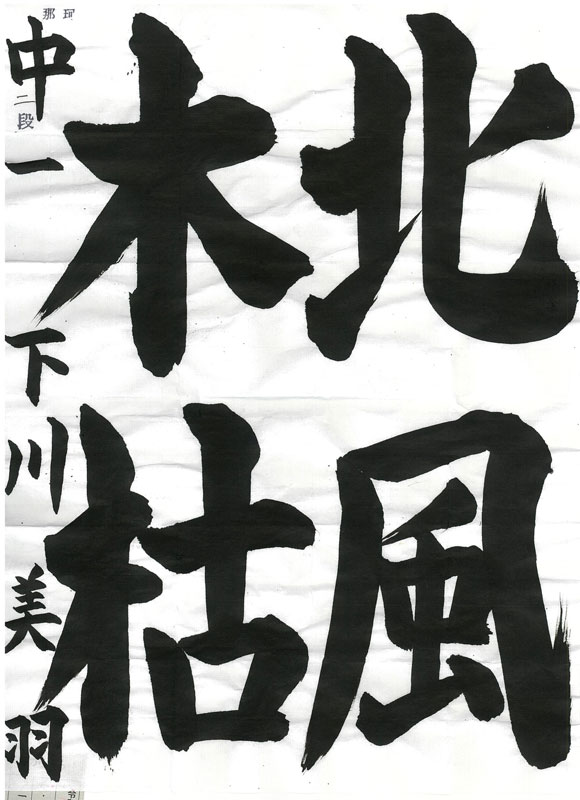 北風
木枯
中一 下川美羽
二段
那珂